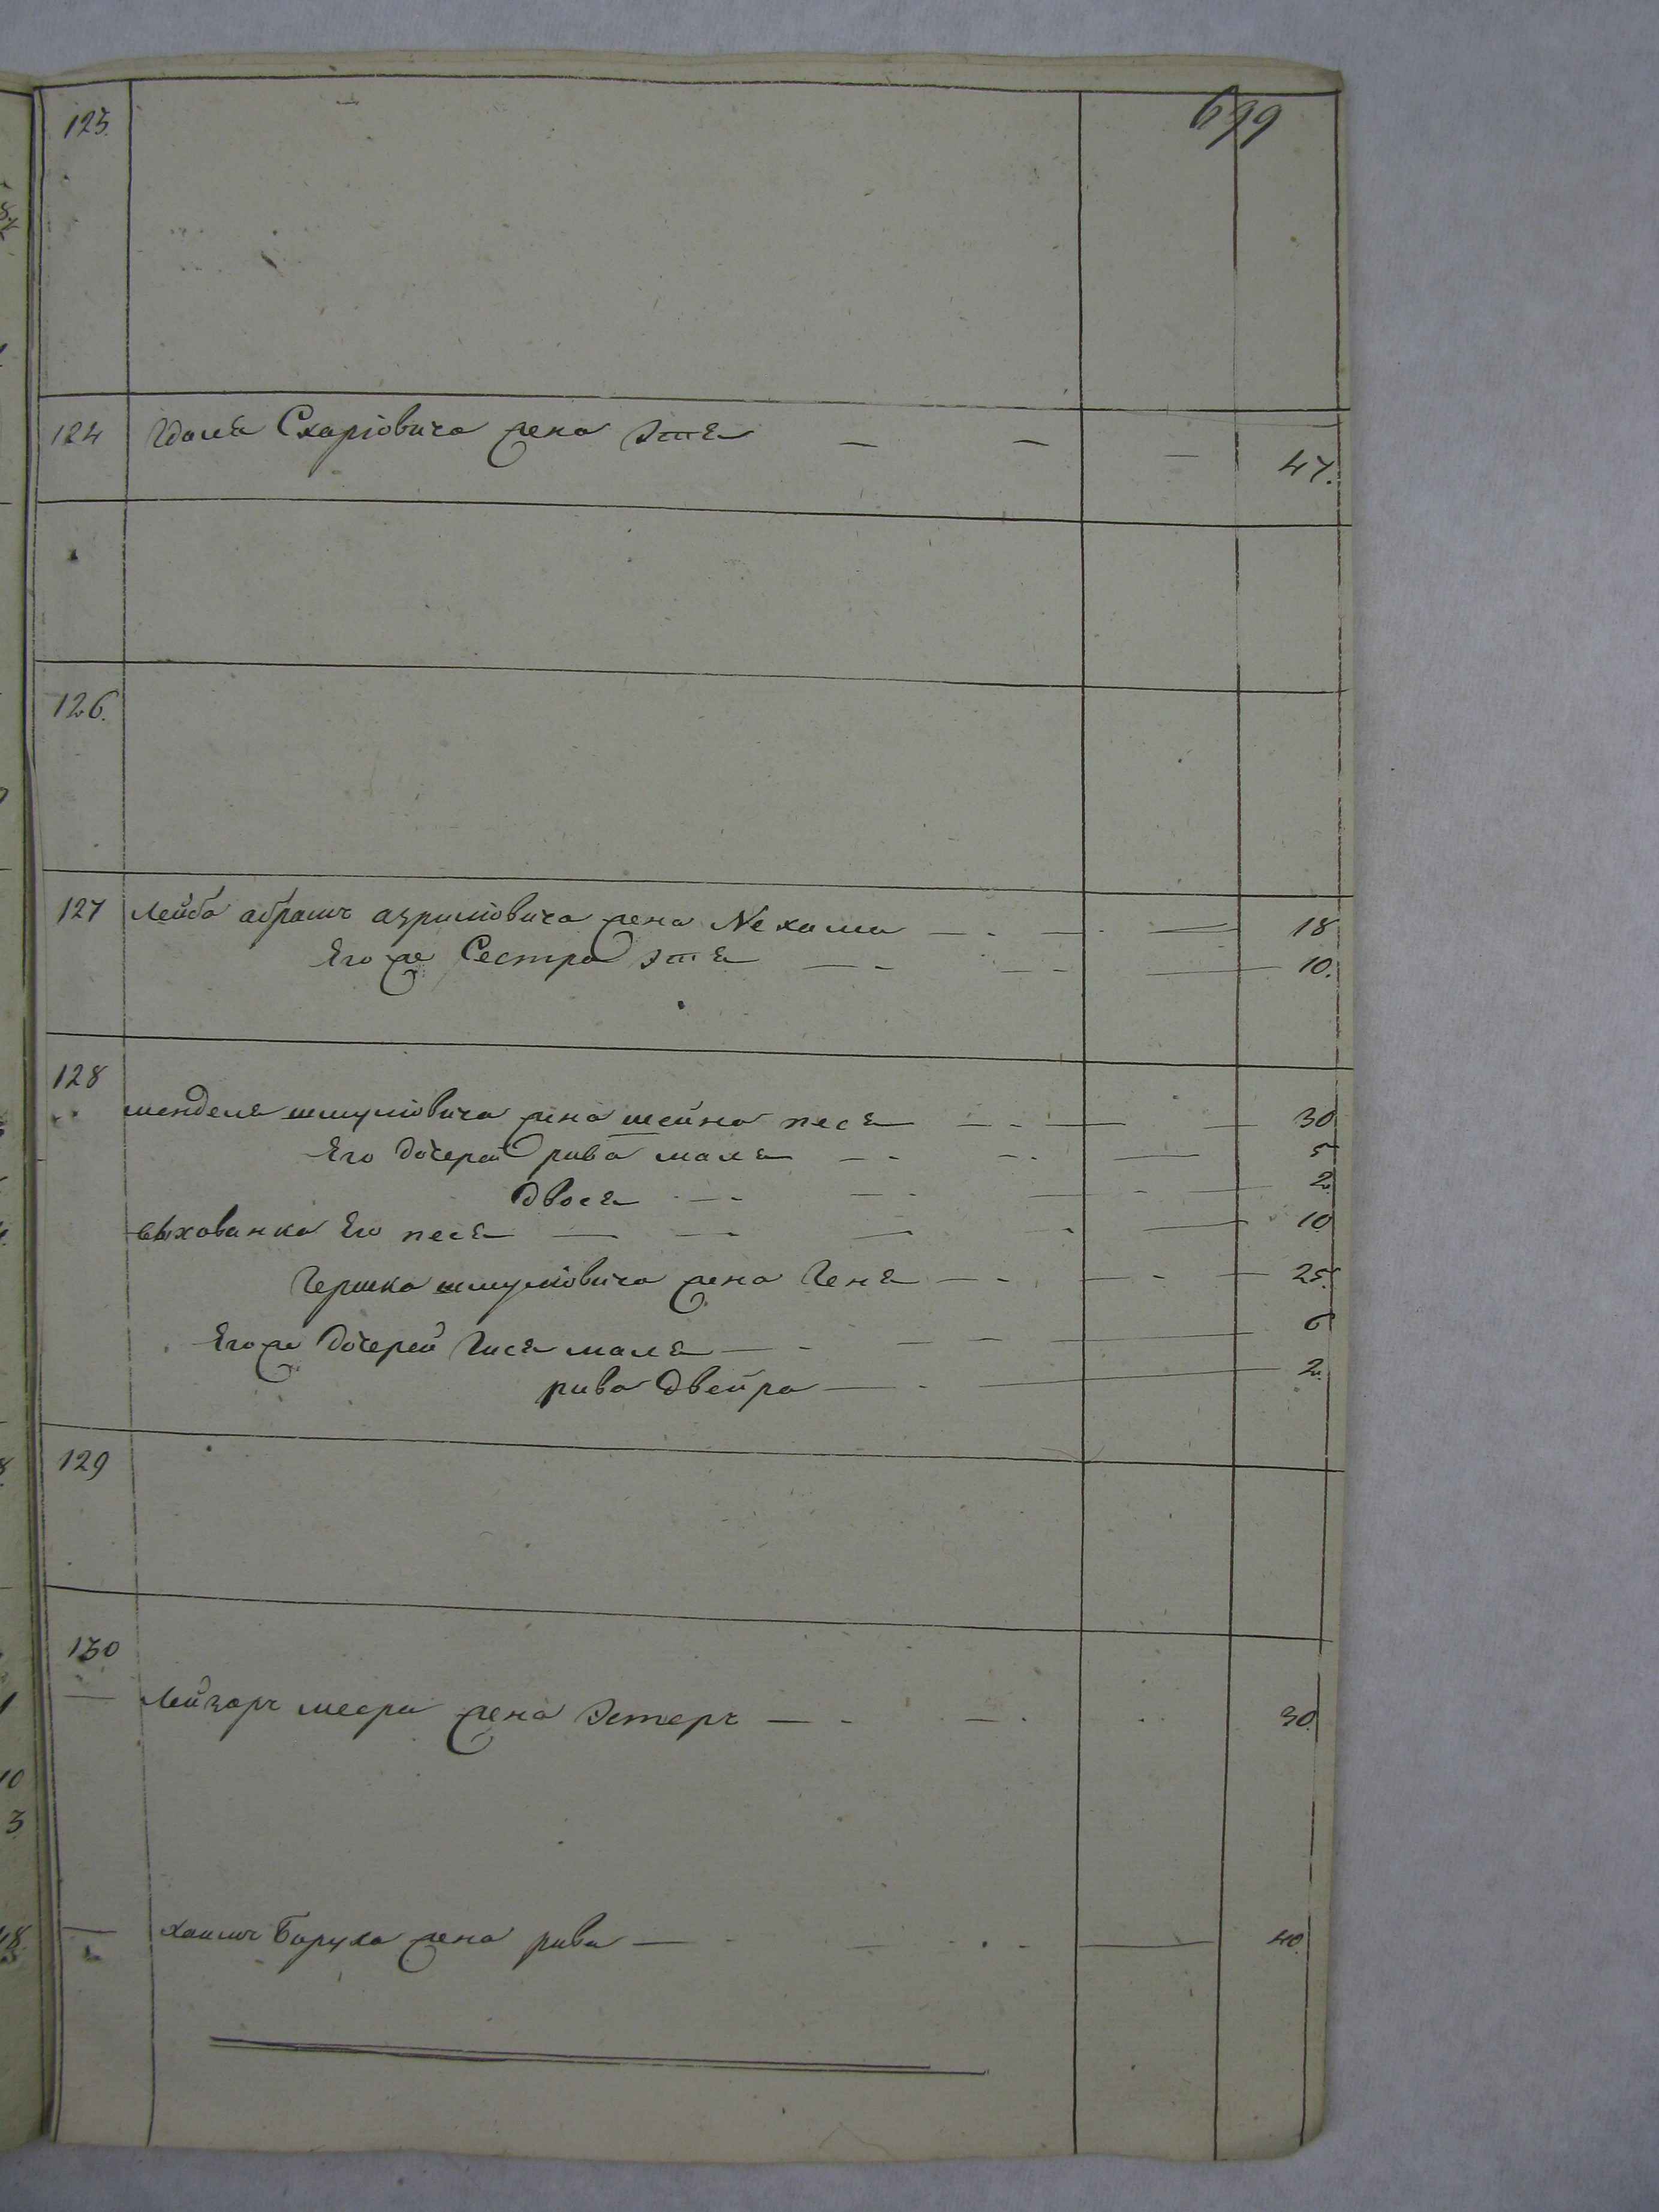 699
123.
124 Идаля Скаріовича жена Этя — — — 47.
126.
127 Лейба абрамъ азриліовича жена Нехама — 18
Его же Сестра Этя — 10.
128
менделя шмуліовича жена шейна песя — 30
Его дочерей рива маля — 5
Двося — 2.
выхованка Его песя — 10
Гершка шмуліовича жена Геня — 25.
Его же дочерей Гися маля — 6
рива Двейра — 2.
129
130
Лейзоръ меера жена Эстеръ — 30
хаимъ Боруха жена рива — 40.